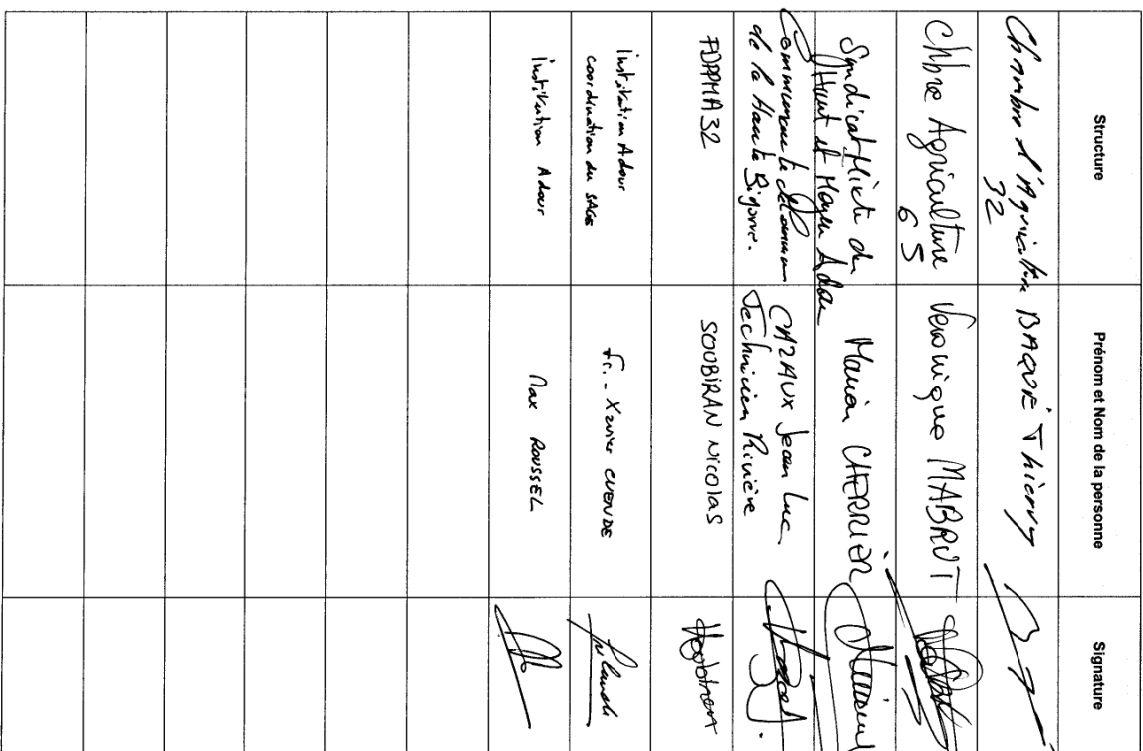 Structure
Prénom et Nom de la personne
Signature
Chambre d'Agriculture
32
BAQUÉ Thierry
Chbre Agriculture
65
Véronique MABRUT
Syndicat Mixte du
Haut et Moyen Adour
Marion CHERRIER
Communauté de Commun
de la Haute Bigorre.
CAZAUX Jean Luc
Technicien Rivière
FDPPMA32
SOUBIRAN Nicolas
Institution Adour
coordination du SAGE
Fr. - Xavier CUENDE
Institution Adour
Max ROUSSEL